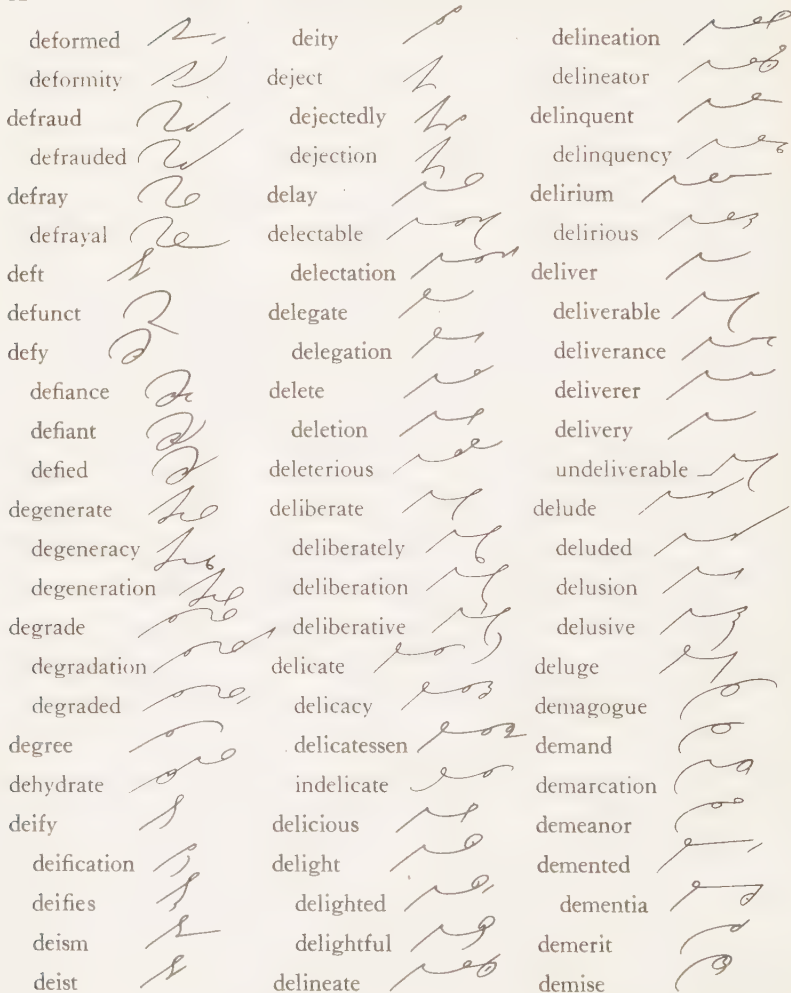 deformed
deformity
defraud
defrauded
defray
defrayal
deft
defunct
defy
defiance
defiant
defied
degenerate
degeneracy
degeneration
degrade
degradation
degraded
degree
dehydrate
deify
deification
deifies
deism
deist
deity
deject
dejectedly
dejection
delay
delectable
delectation
delegate
delegation
delete
deletion
deleterious
deliberate
deliberately
deliberation
deliberative
delicate
delicacy
delicatessen
indelicate
delicious
delight
delighted
delightful
delineate
delineation
delineator
delinquent
delinquency
delirium
delirious
deliver
deliverable
deliverance
deliverer
delivery
undeliverable
delude
deluded
delusion
delusive
deluge
demagogue
demand
demarcation
demeanor
demented
dementia
demerit
demise